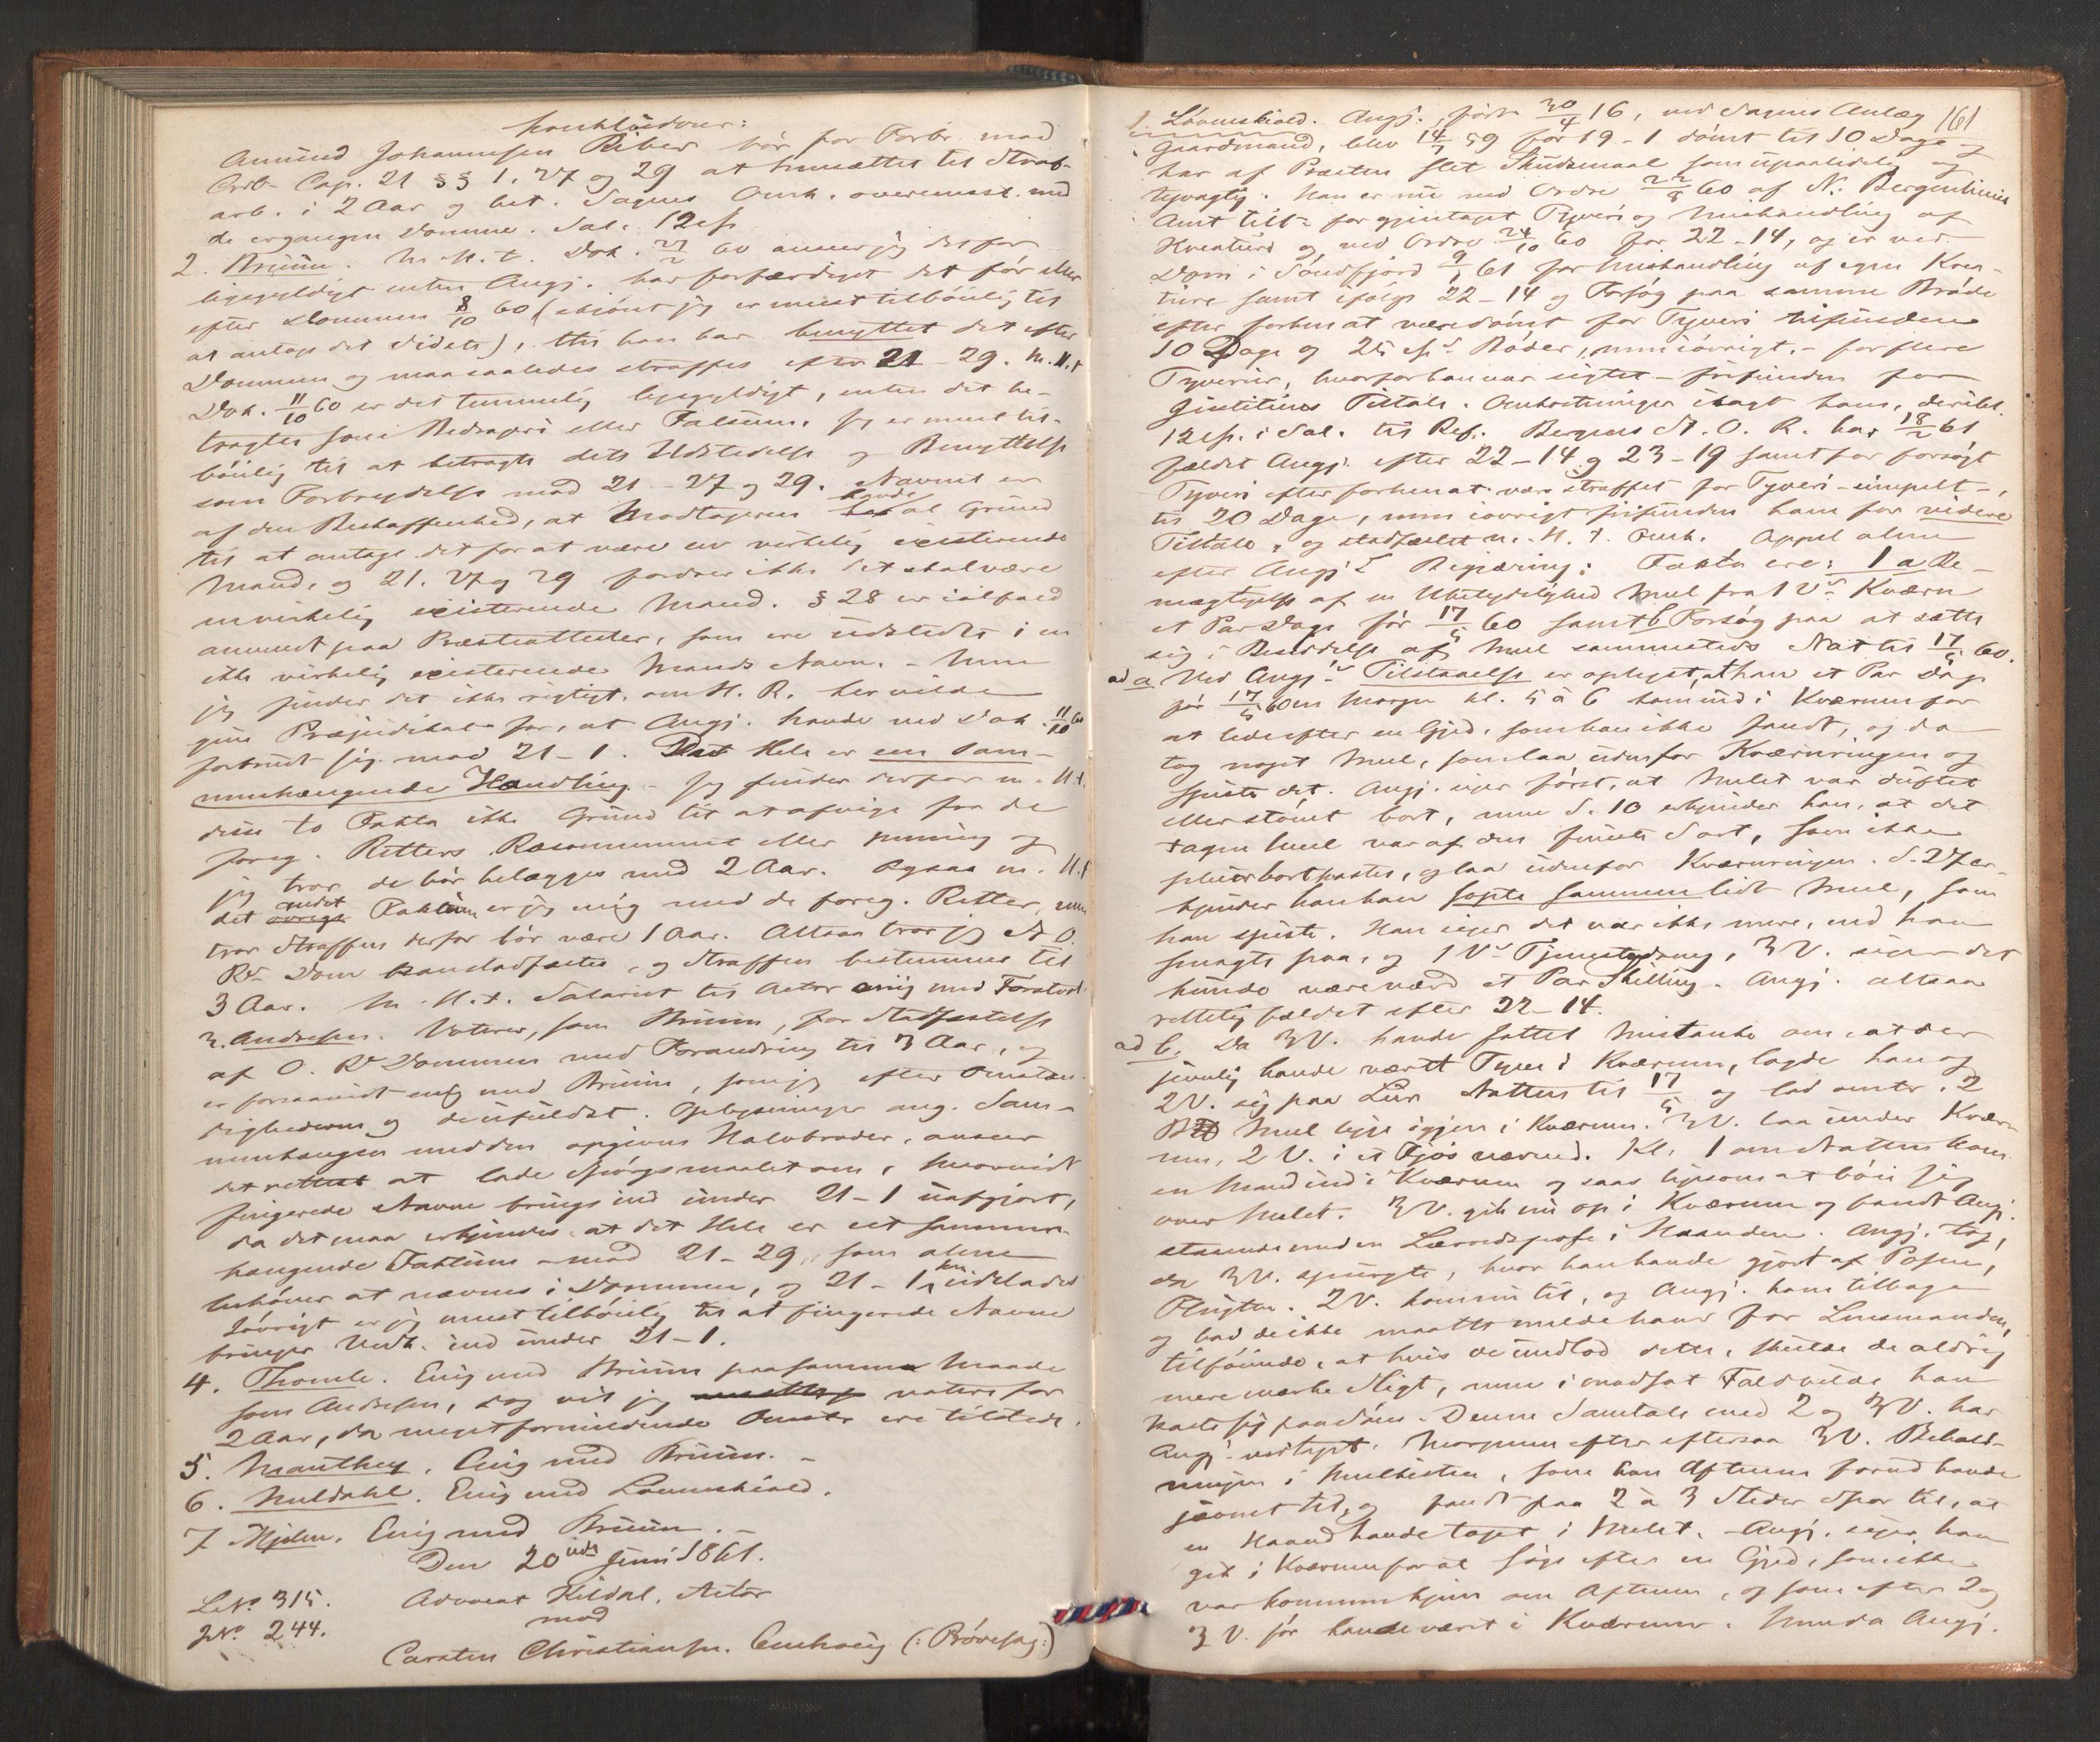 konkluderer:
Amund Johannesen Riber bør for Forbr. mod
Crlb. Cap. 21 §§ 1, 27 og 29 at hensættes til Straf-
arb. i 2 Aar og bet. Sagens Omk. overensst. med
de ergangne Domme. Sal. 12 Sp.
2. Bruun. M. H. t. Dok. 27/2 60 anseer jeg det for
ligegyldigt enten Angj. har forfærdiget det før eller
efter Dommen 8/10 60 (skjønt jeg er meest tilbøielig til
at antage det sidste), thi han har benyttet det efter
Dommen og maa saaledes straffes efter 21 – 29. M. H. t.
Dok. 11/10 60 er det temmelig ligegyldigt, enten det be-
tragtes som Bedrageri eller Falsum. Jeg er meest til-
bøielig til at betragte dets Udstedelse og Benyttelse
som Forbrydelse mod 21 – 27 og 29. Navnet er
af den Beskaffenhed, at Modtageren havde al Grund
til at antage det for at være en virkelig existerende
Mand, og 21. 27 og 29 fordrer ikke det skal være
en virkelig existerende Mand. § 28 er ialfald
anvendt paa Præsteattester, som ere udstedte i en
ikke virkelig existerende Mands Navn. – Men
jeg finder det ikke rigtigt, om H. R. her vilde
give Præjudikat for, at Angj. havde ved Dok. 11/10 60
forbrudt sig mod 21 – 1. Det Hele er een sam-
menhængende Handling. – Jeg finder derfor m. H. t.
disse to Fakta ikke Grund til at afvige fra de
foreg. Retters Raisonnement eller Mening og
jeg tror de bør belægges med 2 Aar. Ogsaa m. H. t.
det andet Faktum er jeg enig med de foreg. Retter, men
tror Straffen derfor bør være 1 Aar. Altsaa tror jeg St. O.
Rs. Dom kan stadfæstes, og Straffen bestemmes til
3 Aar. M. H. t. Salariet til Actor enig med Førstvot.
3. Andresen. Voterer, som Bruun, for Stadfæstelse
af O. Rs. Dommen med Forandring til 3 Aar, og
er forsaavidt enig med Bruun, som jeg efter Omstæn-
dighederne og de ufuldst. Oplysninger ang. Sam-
menhængen med den opgivne Halvbroder, anseer
det rettest at lade Spørgsmaalet om, hvorvidt
fingerede Navne bringes ind under 21 – 1 uafgjort,
da det maa erkjendes, at det Hele er eet sammen-
hængende Faktum – mod 21 – 29, som alene
behøver at nævnes i Dommen, og 21 – 1 kan udelades
Iøvrigt er jeg meest tilbøielig til at fingerede Navne
bringes Vedk. ind under 21 – 1.
4. Thomle. Enig med Bruun paa samme Maade
som Andresen, dog vil jeg votere for
2 Aar, da meget formildende Omst. ere tilstede.
5. Manthey. Enig med Bruun. –
6. Muldahl. Enig med Løvenskiold.
7. Hjelm. Enig med Bruun. –
Den 20nde Juni 1861.
L. No. 315. Advocat Kildal, Actor
J. No. 244. mod
Carsten Christiansen (: Prøvesag :)
161
1. Løvenskiold. Angj., født 30/4 16, ved Sagens Anlæg
Gaardmand, blev 14/7 59 for 19 – 1 dømt til 10 Dage og
har af Præsten slet Skudsmaal som upaalidelig og
tyvagtig. Han er nu ved Ordre 22/8 60 af N. Bergenhuus
Amt tilt. for gjentaget Tyveri og Mishandling af
Kreaturer og ved Ordre 24/10 60 for 22 – 14, og er ved
Dom i Søndfjord 9/1 61 for Mishandling af egne Krea-
turer samt ifølge 22 – 14 og Forsøg paa samme Brøde
efter forhen at være dømt for Tyveri
10 Dage og 25 Spd. Bøder, men iøvrigt – for flere
Tyverier, hvorfor han var sigtet – frifunden for
Justitiens Tiltale. Omkostninger ilagt ham, deribl.
12 Sp. i Sal. til Ref. Bergens St. O. R. har 18/2 61
fældet Angj. efter 22 – 14 og 23 – 19 samt for forsøgt
Tyveri efter forhen at være straffet for Tyveri – simpelt –,
til 20 Dage, men iøvrigt frifunden ham for videre
Tiltale, og stadfæstet m. H. t. Omk. Appel alene
efter Angj.s Begjæring. Fakta ere: 1 a Be-
mægtigelse af en Ubetydelighed Meel fra 1 Vs. Kværn
et Par Dage før 17/5 60 samt b Forsøg paa at sætte
sig i Besiddelse af Meel sammesteds Nat til 17/5 60.
ad a Ved Angj.s Tilstaaelse er oplyst, at han et Par Dage
før 17/5 60 om Morgen kl. 5 à 6 kom ind i Kværnen for
at lede efter en Gjed, som han ikke fandt, og da
tog noget Meel, som laa udenfor Kværnringen og
spiste det. Angj. siger først, at Melet var duftet
eller støvet bort, men S. 10 erkjender han, at det
tagne Meel var af den fineste Sort, som ikke
pleier bortkastes, og laa udenfor Kværnringen. S. 27 er-
kjender han han sopte sammen lidt Meel, som
han spiste. Han siger det var ikke mere, end han
smagte paa, og 1 Vs. Tjenestedreng, 3 V. siger det
kunde være værd et Par Skilling. Angj. altsaa
rettelig fældet efter 22 – 14.
ad b. Da 3 V. havde fattet Mistanke om, at der
jevnlig havde været Tyve i Kværnen, lagde han og
2 V. sig paa Lur Natten til 17/5 og lod omtr. 2
Meel ligge igjen i Kværnen. 3 V. laa under Kvær-
nen, 2 V. i et Fjøs nærved. Kl. 1 om Natten kom
en Mand ind i Kværnen og saaes ligesom at bøie sig
over Melet. 3 V. gik nu op i Kværnen og fandt Angj.
staaende med en Lærredspose i Haanden. Angj. tog,
da 3 V. spurgte, hvor han havde gjort af Posen,
Flugten. 2 V. kom nu til, og Angj. kom tilbage
og bad de ikke maatte melde ham for Lensmanden,
tilføiende, at hvis de undlod dette, skulde de aldrig
mere mærke Sligt, men i modsat Fald vilde han
kaste sig paa Søen. Denne Samtale med 2 og 3 V. har
Angj. vedtaget. Morgenen efter eftersaa 3 V. Behold-
ningen i Meelkisten, som han Aftenen forud havde
jævnet til, og fandt paa 2 à 3 Steder Spor til, at
en Haand havde taget i Melet. – Angj. siger han
gik i Kværnen for at søge efter en Gjed, som ikke
var kommen hjem om Aftenen, og som efter 2 og
3 V. før havde været i Kværnen. Men da Angj.